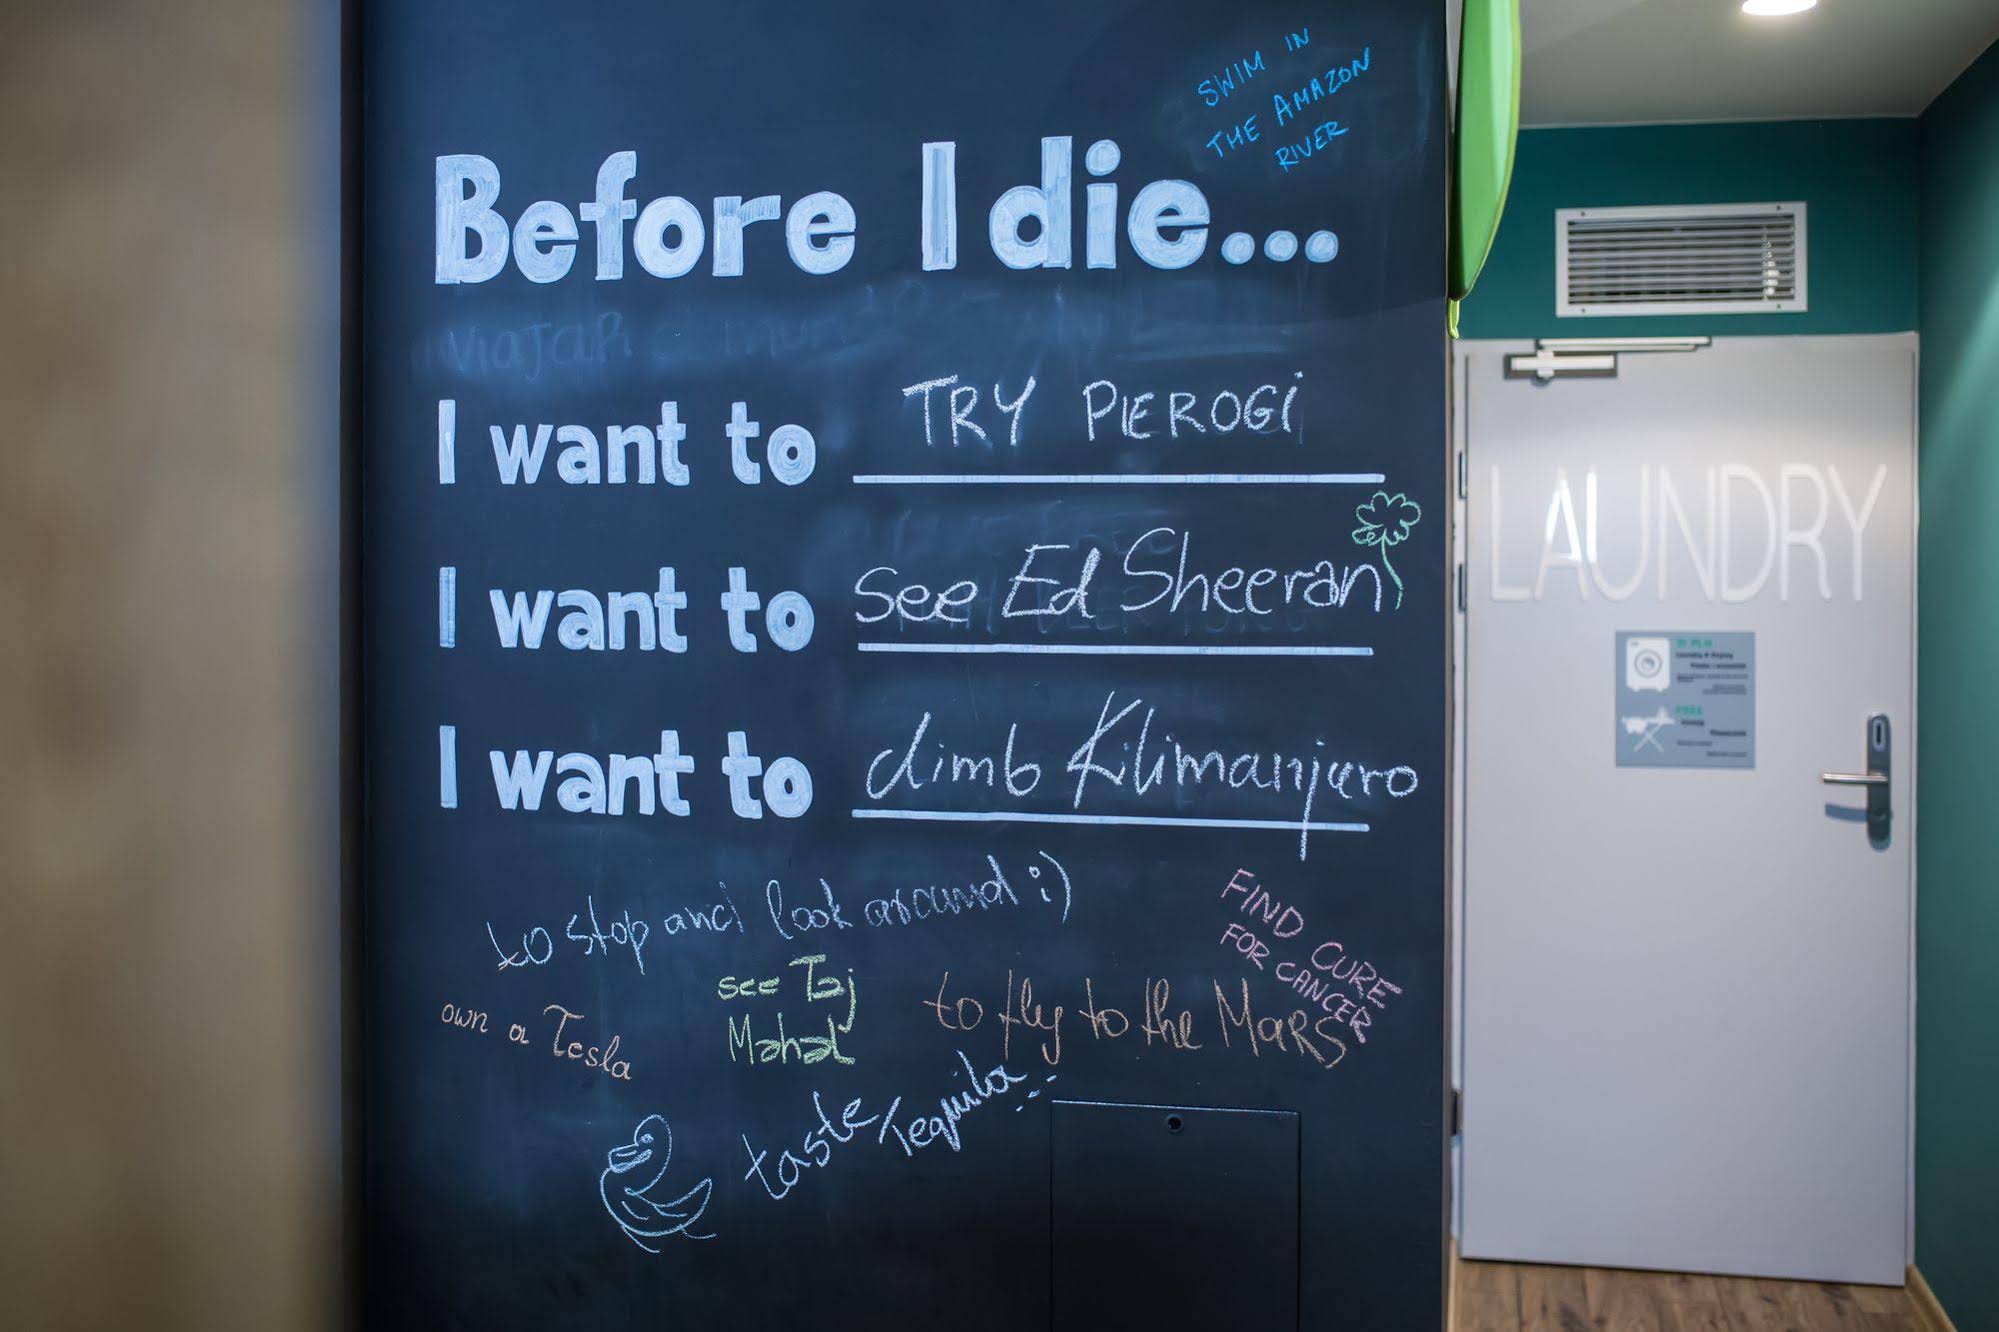 SWIM IN
THE AMAZON
RIVER
Before I die...
viajar
I want to TRY PIEROGI
I want to see Ed Sheeran
I want to climb Kilimanjuro
to stop and look around :)
FIND CURE
FOR CANCER
own a Tesla
see Taj
Mahal
to fly to the MARS
taste Tequila
LAUNDRY
FREE